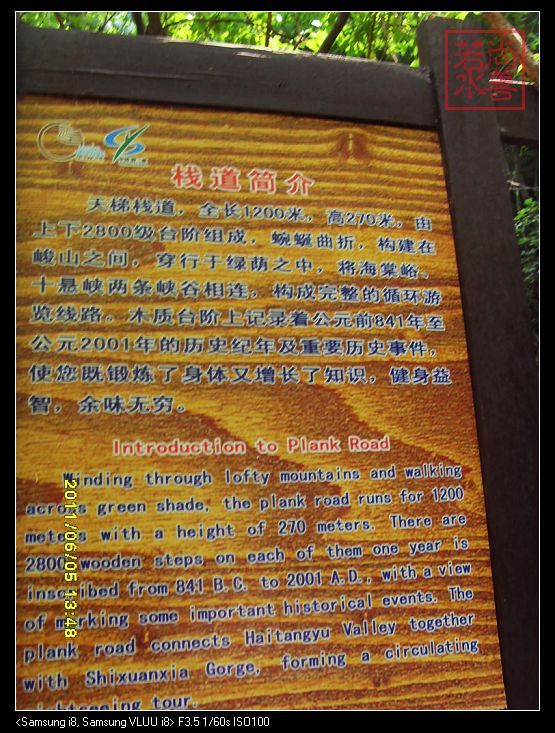 尚善
若水
栈道简介
天梯栈道，全长1200米，高270米，由
上下2800级台阶组成，蜿蜒曲折，构建在
峻山之间，穿行于绿荫之中，将海棠峪、
十悬峡两条峡谷相连，构成完整的循环游
览线路。木质台阶上记录着公元前841年至
公元2001年的历史纪年及重要历史事件，
使您既锻炼了身体又增长了知识，健身益
智，余味无穷。
Introduction to Plank Road
Winding through lofty mountains and walking
across green shade, the plank road runs for 1200
meters with a height of 270 meters. There are
2800 wooden steps on each of them one year is
inscribed from 841 B.C. to 2001 A.D., with a view
of marking some important historical events. The
plank road connects Haitangyu Valley together
with Shixuanxia Gorge, forming a circulating
sightseeing tour.
2011/06/05 13:48
<Samsung i8, Samsung VLUU i8> F3.5 1/60s ISO100